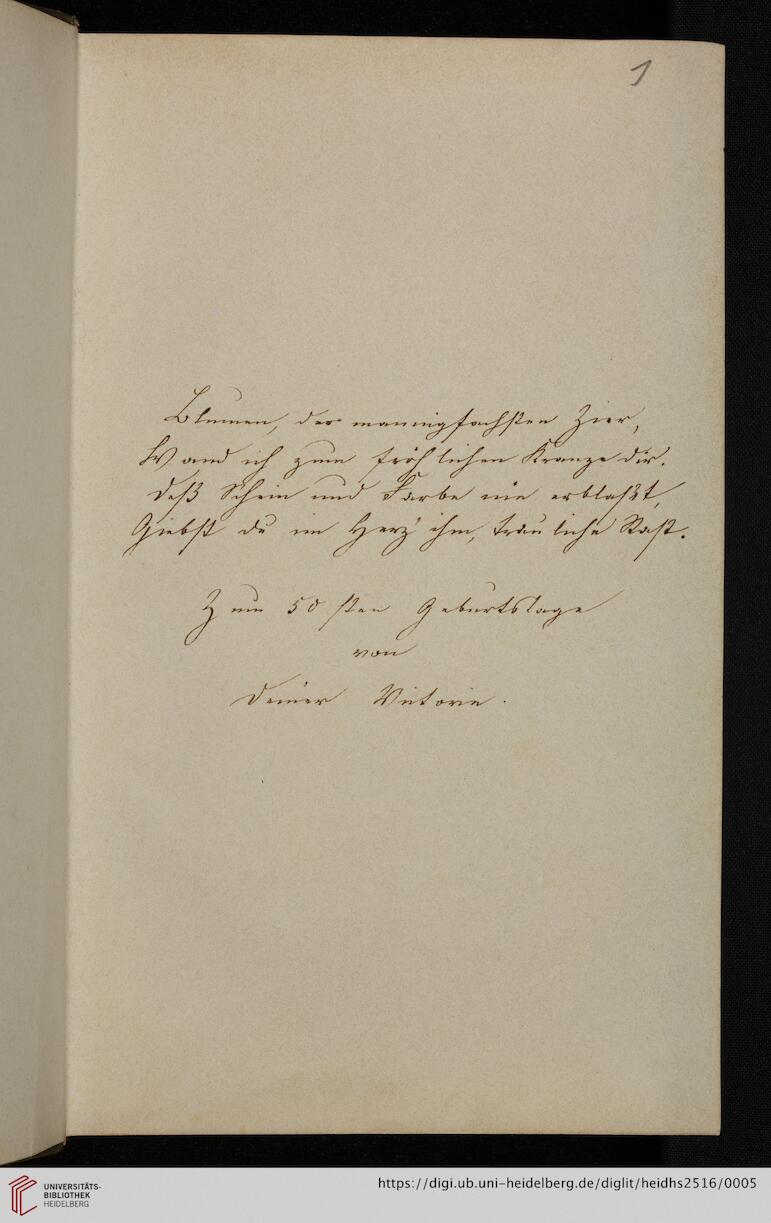 1
Blumen, der mannigfachsten Zier,
Wand ich zum fröhlichen Kranze dir.
Deß Schein und Farbe nie erblaßt,
Giebst du im Herz' ihm, trauliche Rast.
Zum 50 sten Geburtstage
von
Deiner Victorie.
UNIVERSITÄTS-
BIBLIOTHEK
HEIDELBERG
https://digi.ub.uni-heidelberg.de/diglit/heidhs2516/0005